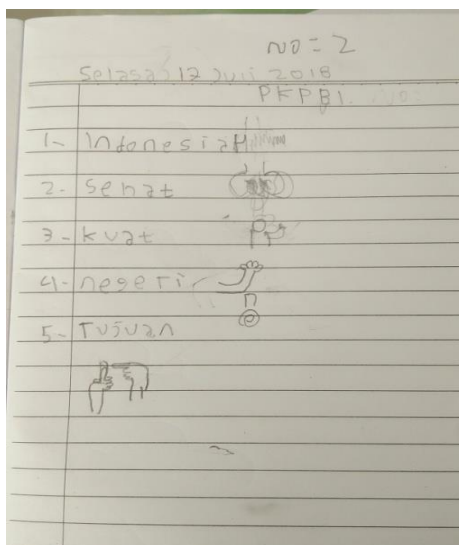 NO = 2
Selasa, 17 Juli 2018
PKPBI.
1- Indonesia
2- Sehat
3- kuat
4- negeri
n
e
5- Tujuan